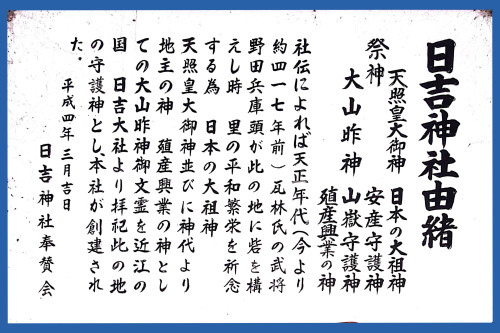 日吉神社由緒
祭神
天照皇大御神 日本の大祖神
安産守護神
大山昨神 山嶽守護神
殖産興業の神
社伝によれば天正年代(今より
約四一七年前)瓦林氏の武将
野田兵庫頭が此の地に砦を構
えし時 里の平和繁栄を祈念
する為 日本の大祖神
天照皇大御神並びに神代より
地主の神 殖産興業の神とし
ての大山昨神御文霊を近江の
国 日吉大社より拝祀此の地
の守護神とし、本社が創建され
た。
平成四年三月吉日
日吉神社奉賛会